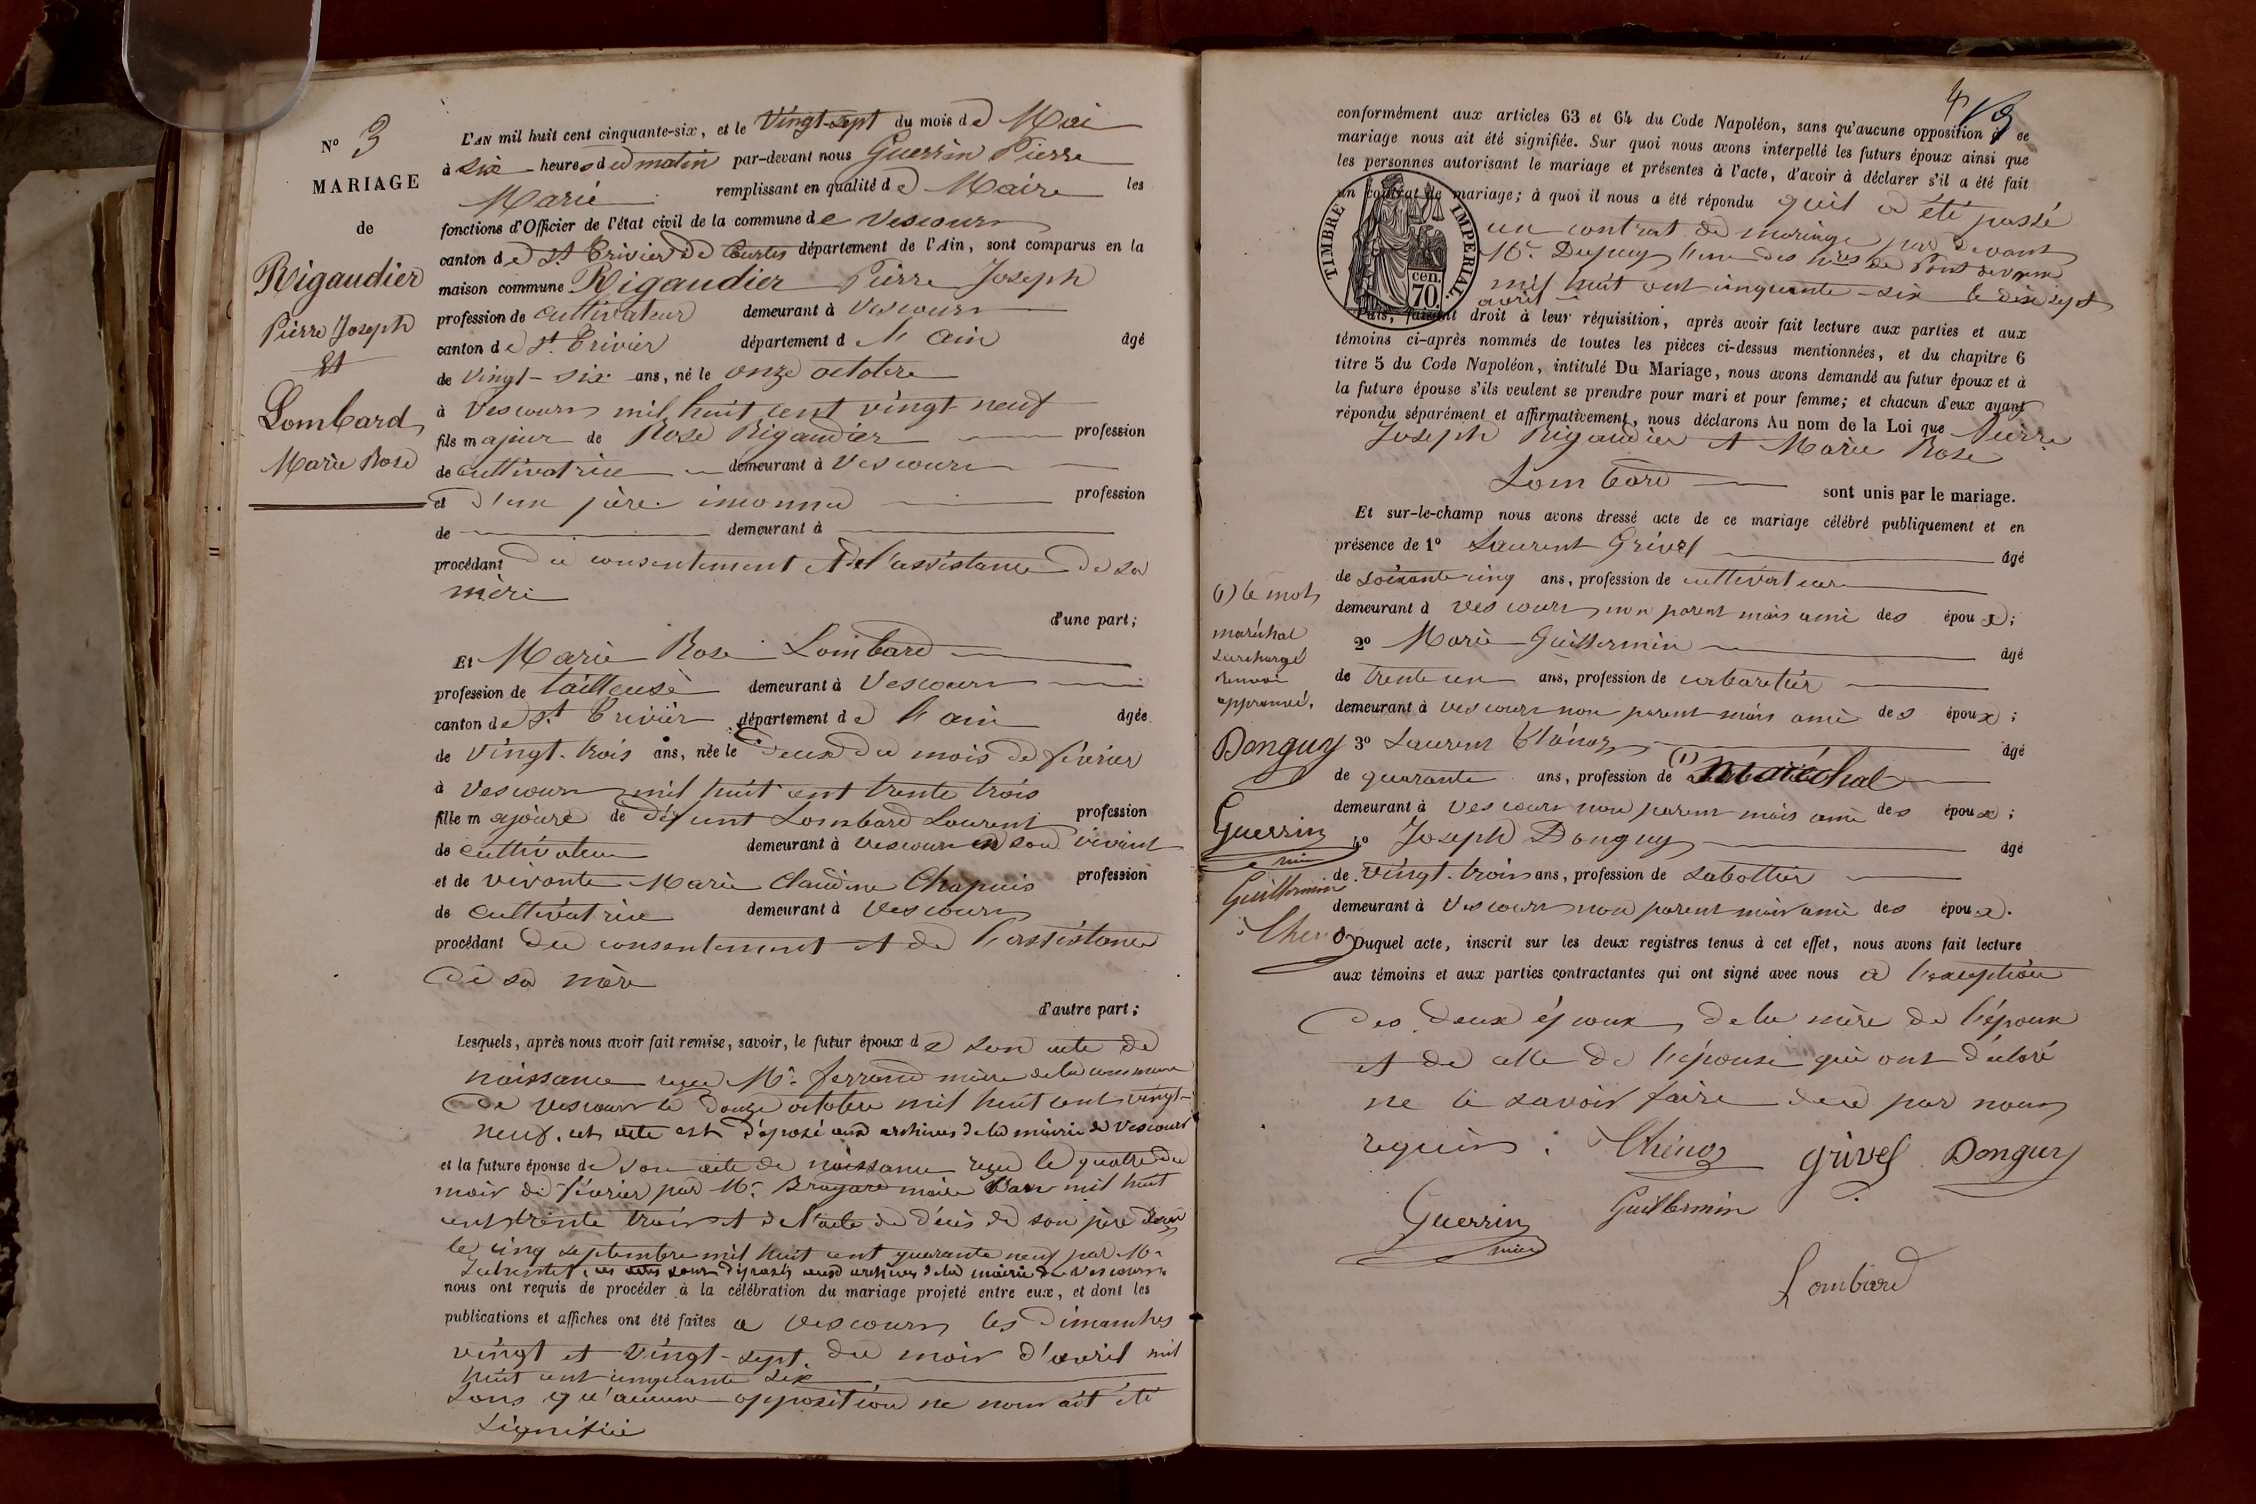 N° 3
MARIAGE
de
Rigaudier
Pierre Joseph
Et
Lombard
Marie Rose
L'AN mil huit cent cinquante-six, et le Vingt-sept du mois de Mai
à six heures du matin par-devant nous Guerrin Pierre
Marie remplissant en qualité de Maire les
fonctions d'Officier de l'état civil de la commune de Vescours
canton de St Trivier de Courtes département de l'Ain, sont comparus en la
maison commune Rigaudier Pierre Joseph
profession de cultivateur demeurant à Vescours
canton de St. Trivier département d l'ain âgé
de vingt-six ans, né le onze octobre
à Vescours mil huit cent vingt neuf
fils majeur de Rose Rigaudier profession
de cultivatrice demeurant à Vescours
et d'un père inconnu profession
de demeurant à
procédant du consentement et de l'assistance de sa
mère
d'une part;
Et Marie Rose Lombard
profession de tailleuse demeurant à Vescours
canton de St Trivier département de l'ain âgée
de vingt-trois ans, née le deux du mois de février
à Vescours mil huit cent trente trois
fille majeure de défunt Lombard Laurent profession
de cultivateur demeurant à Vescours en son vivant
et de vivante Marie Claudine Chapuis profession
de cultivatrice demeurant à Vescours
procédant du consentement et de l'assistance
de sa mère
d'autre part;
Lesquels, après nous avoir fait remise, savoir, le futur époux de son acte de
naissance reçu Mr. Ferrand maire de la commune
de Vescours le douze octobre mil huit cent vingt-
neuf, cet acte est déposé aux archives de la mairie de Vescours
et la future épouse de son acte de naissance reçu le quatre du
mois de février par Mr. Brayard maire l'an mil huit
cent trente trois et de l'acte de décès de son père
le cinq septembre mil huit cent quarante neuf par Mr
ces actes sont déposés aux archives de la mairie de Vescours
nous ont requis de procéder à la célébration du mariage projeté entre eux, et dont les
publications et affiches ont été faites à Vescours les dimanches
vingt et vingt-sept du mois d'avril mil
huit cent cinquante six
sans qu'aucune opposition ne nous ait été
signifiée
4
conformément aux articles 63 et 64 du Code Napoléon, sans qu'aucune opposition à ce
mariage nous ait été signifiée. Sur quoi nous avons interpellé les futurs époux ainsi que
les personnes autorisant le mariage et présentes à l'acte, d'avoir à déclarer s'il a été fait
un contrat de mariage; à quoi il nous a été répondu qu'il a été passé
un contrat de mariage par devant
Mr. Dupuy l'un des nres de Pont de vaux
mil huit cent cinquante-six le dix sept
avril
TIMBRE IMPERIAL
cen.
70.
Puis, faisant droit à leur réquisition, après avoir fait lecture aux parties et aux
témoins ci-après nommés de toutes les pièces ci-dessus mentionnées, et du chapitre 6
titre 5 du Code Napoléon, intitulé Du Mariage, nous avons demandé au futur époux et à
la future épouse s'ils veulent se prendre pour mari et pour femme; et chacun d'eux ayant
répondu séparément et affirmativement, nous déclarons Au nom de la Loi que Pierre
Joseph Rigaudier et Marie Rose
Lombard sont unis par le mariage.
Et sur-le-champ nous avons dressé acte de ce mariage célébré publiquement et en
présence de 1° Laurent Grivel âgé
de soixante cinq ans, profession de cultivateur
demeurant à Vescours non parent mais ami des époux;
2° Marie Guillermin âgé
de trente un ans, profession de cabaretier
demeurant à Vescours non parent mais ami des époux;
3° Laurent Thénoz âgé
de quarante ans, profession de (1) maréchal
demeurant à Vescours non parent mais ami des époux;
4° Joseph Donguy âgé
de vingt-trois ans, profession de sabottier
demeurant à Vescours non parent mais ami des époux.
(1) le mot
maréchal
surchargé
renvoi
approuvé.
Donguy
Guerrin
mire
Guillermin
Thénoz
Duquel acte, inscrit sur les deux registres tenus à cet effet, nous avons fait lecture
aux témoins et aux parties contractantes qui ont signé avec nous à l'exception
des deux époux, de la mère de l'époux
et de celle de l'épouse qui ont déclaré
ne le savoir faire de ce par nous
requis. Thénoz Grivel Donguy
Guerrin Guillermin
mire
Lombard